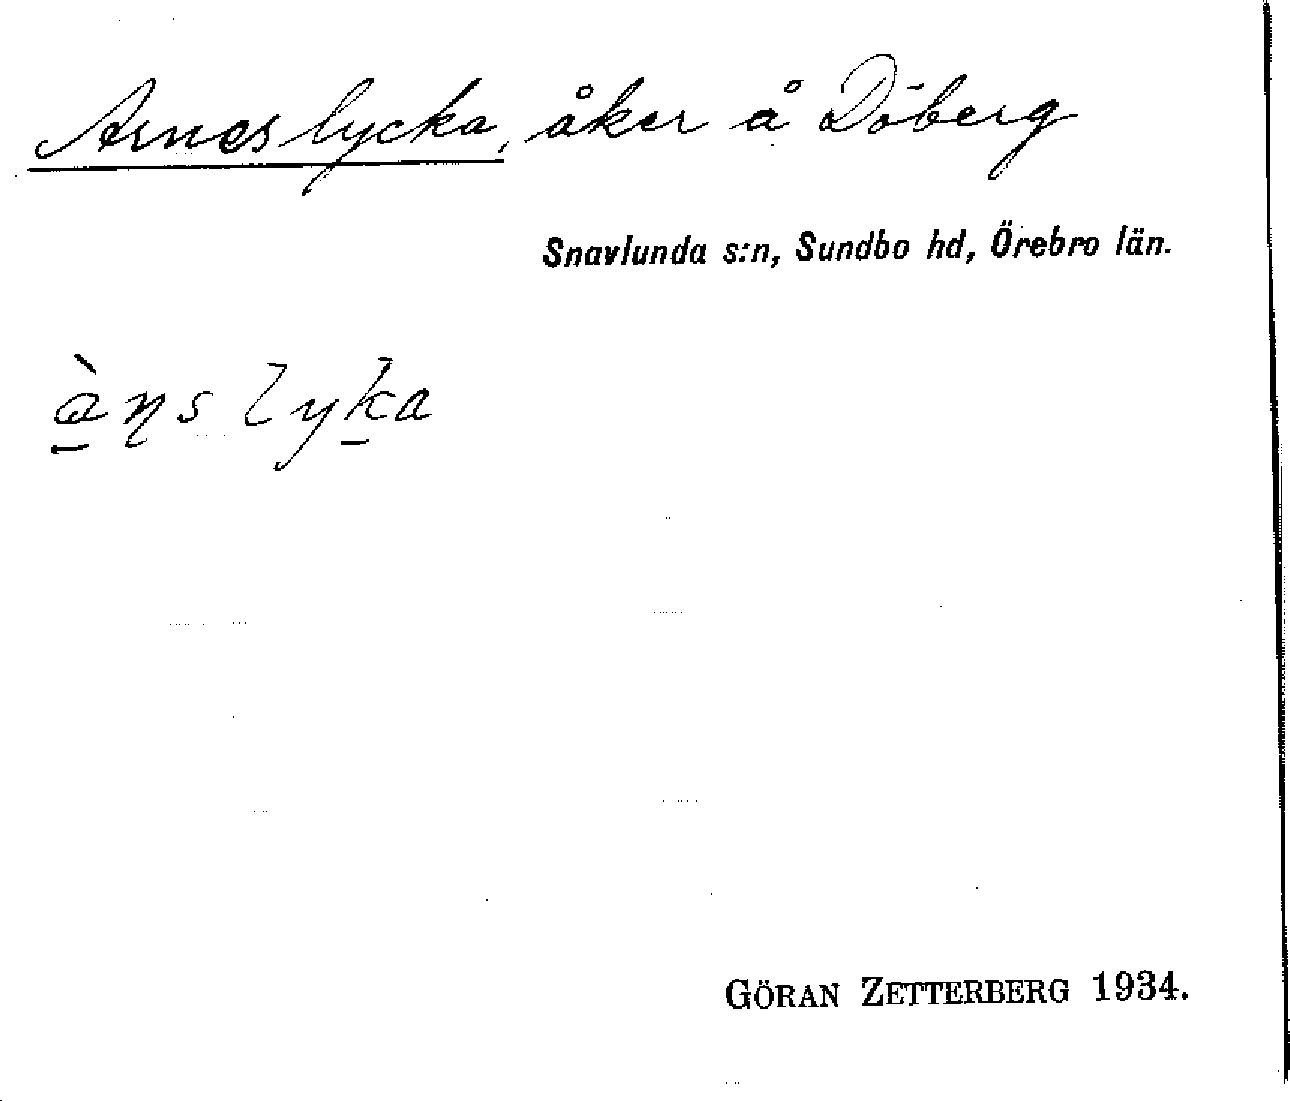 Arnes lycka, åker å Döberg
Snavlunda s:n, Sundbo hd, Örebro län.
ạ̀ɳs lyḵa
GÖRAN ZETTERBERG 1934.